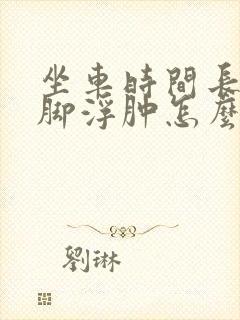 坐車時間長
脚浮肿怎麼
劉琳